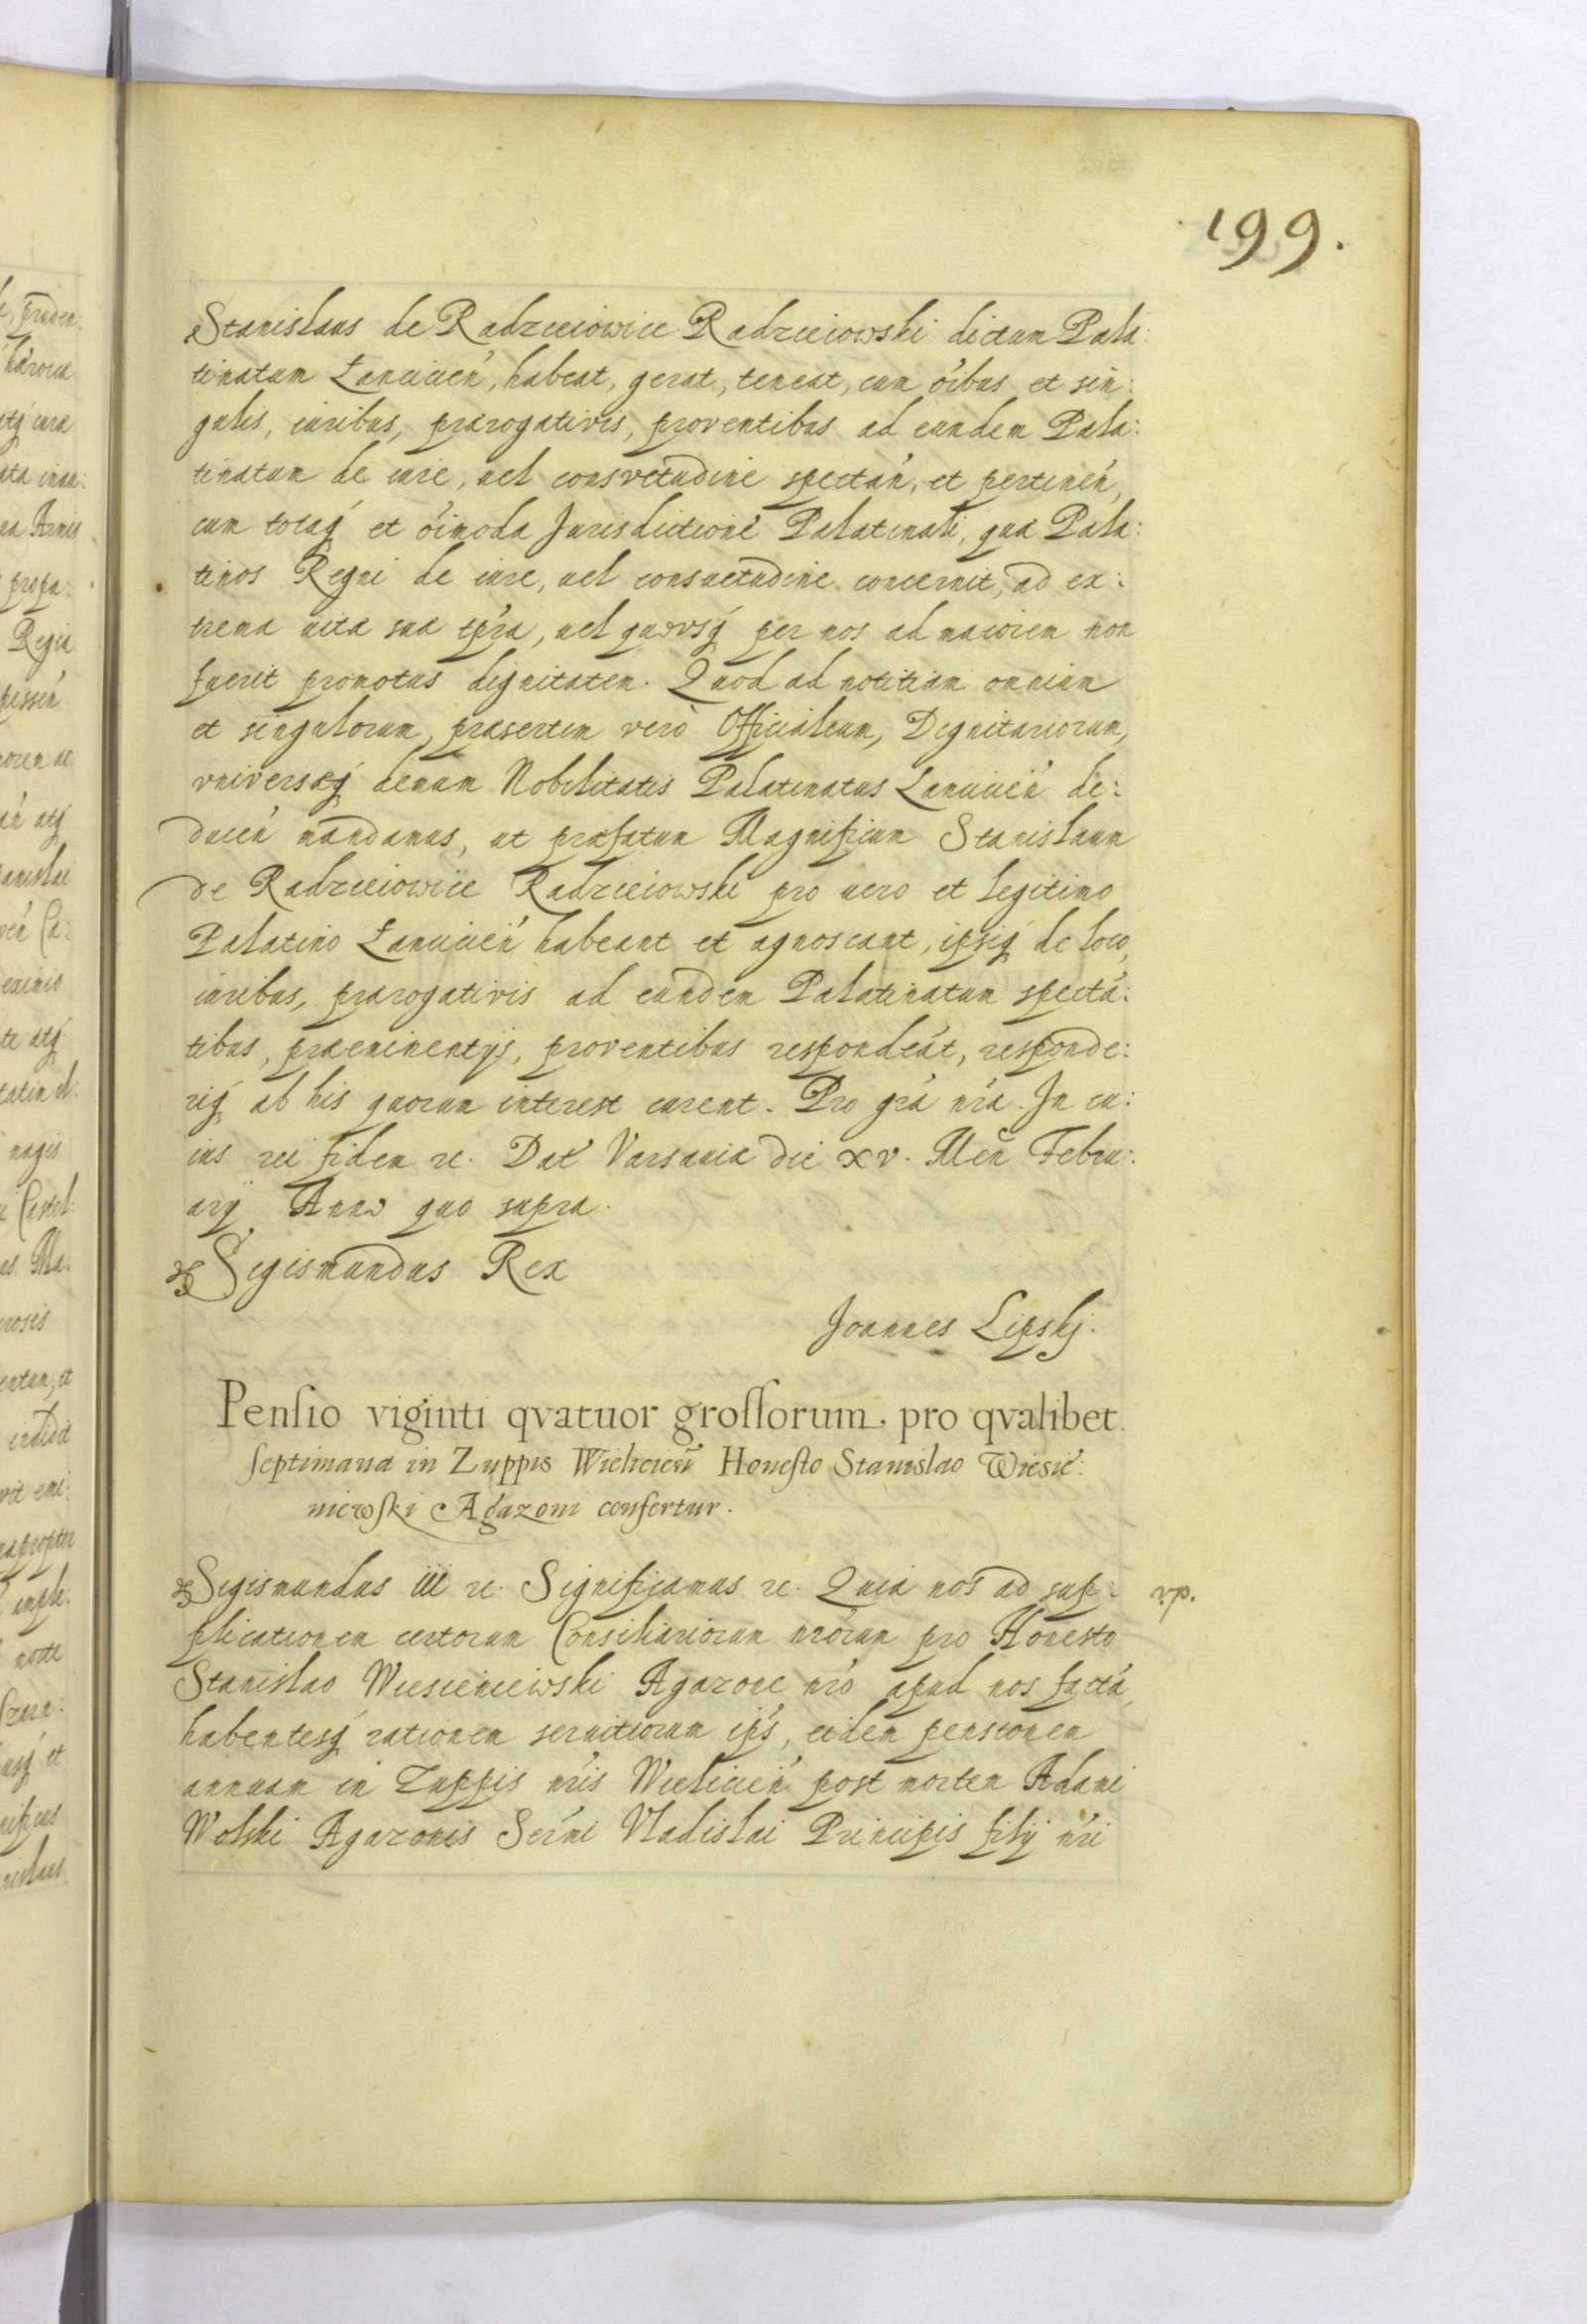 199.
Stanislaus de Radzieiowice Radzieiowski dictum Pala:
tinatum Łancicień, habeat, gerat, teneat, cum óibus et sin:
gulis, iuribus, prærogativis, proventibus ad eundem Pala:
tinatum de iure, uel consvetudine spectań, et pertineń,
cum totaq́ et óimoda Jurisdictione Palatinali, quæ Pala:
tinos Regni de iure, uel consuetudine concernit, ad ex:
trema uitæ suæ tṕra, uel quovsq́ per nos ad maiorem non
fuerit promotus dignitatem. Quod ad notitiam omnium
et singulorum, præsertim verò Officialium, Dignitariorum,
vniversæq́ demum Nobilitatis Palatinatus Lancicień de:
ducén mandamus, ut præfatum Magnificum Stanislaum
de Radzieiowice Radzieiowski pro uero et legitimo
Palatino Łancicień habeant et agnoscant, ipsiq́ de loco,
iuribus, prærogativis ad eundem Palatinatum spectá:
tibus, præeminentijs, proventibus respondeát, responde:
riq́ ab his quorum interest curent. Pro grá nrá. In cu:
ius rei fidem rc. Dat́ Varsauiæ die XV. Meñ Febru:
arij Anno quo supra.
Sigismundus Rex
Joannes Lipskj.
Pensio viginti qvatuor grossorum pro qvalibet
septimana in Zuppis Wielicień Honesto Stanislao Wiesie:
niewski Agazoni confertur.
Sigismundus iii rc. Significamus rc. Quia nos ad sup: v.p.
plicationem certorum Consiliariorum nrórum pro Honesto
Stanislao Wiesieniewski Agazone nró apud nos factá,
habentesq́ rationem seruitiorum iṕs, eidem pensionem
annuam in Zuppis nrís Wielicień post mortem Adami
Wolski Agazonis Serḿi Vladislai Principis filij nrí